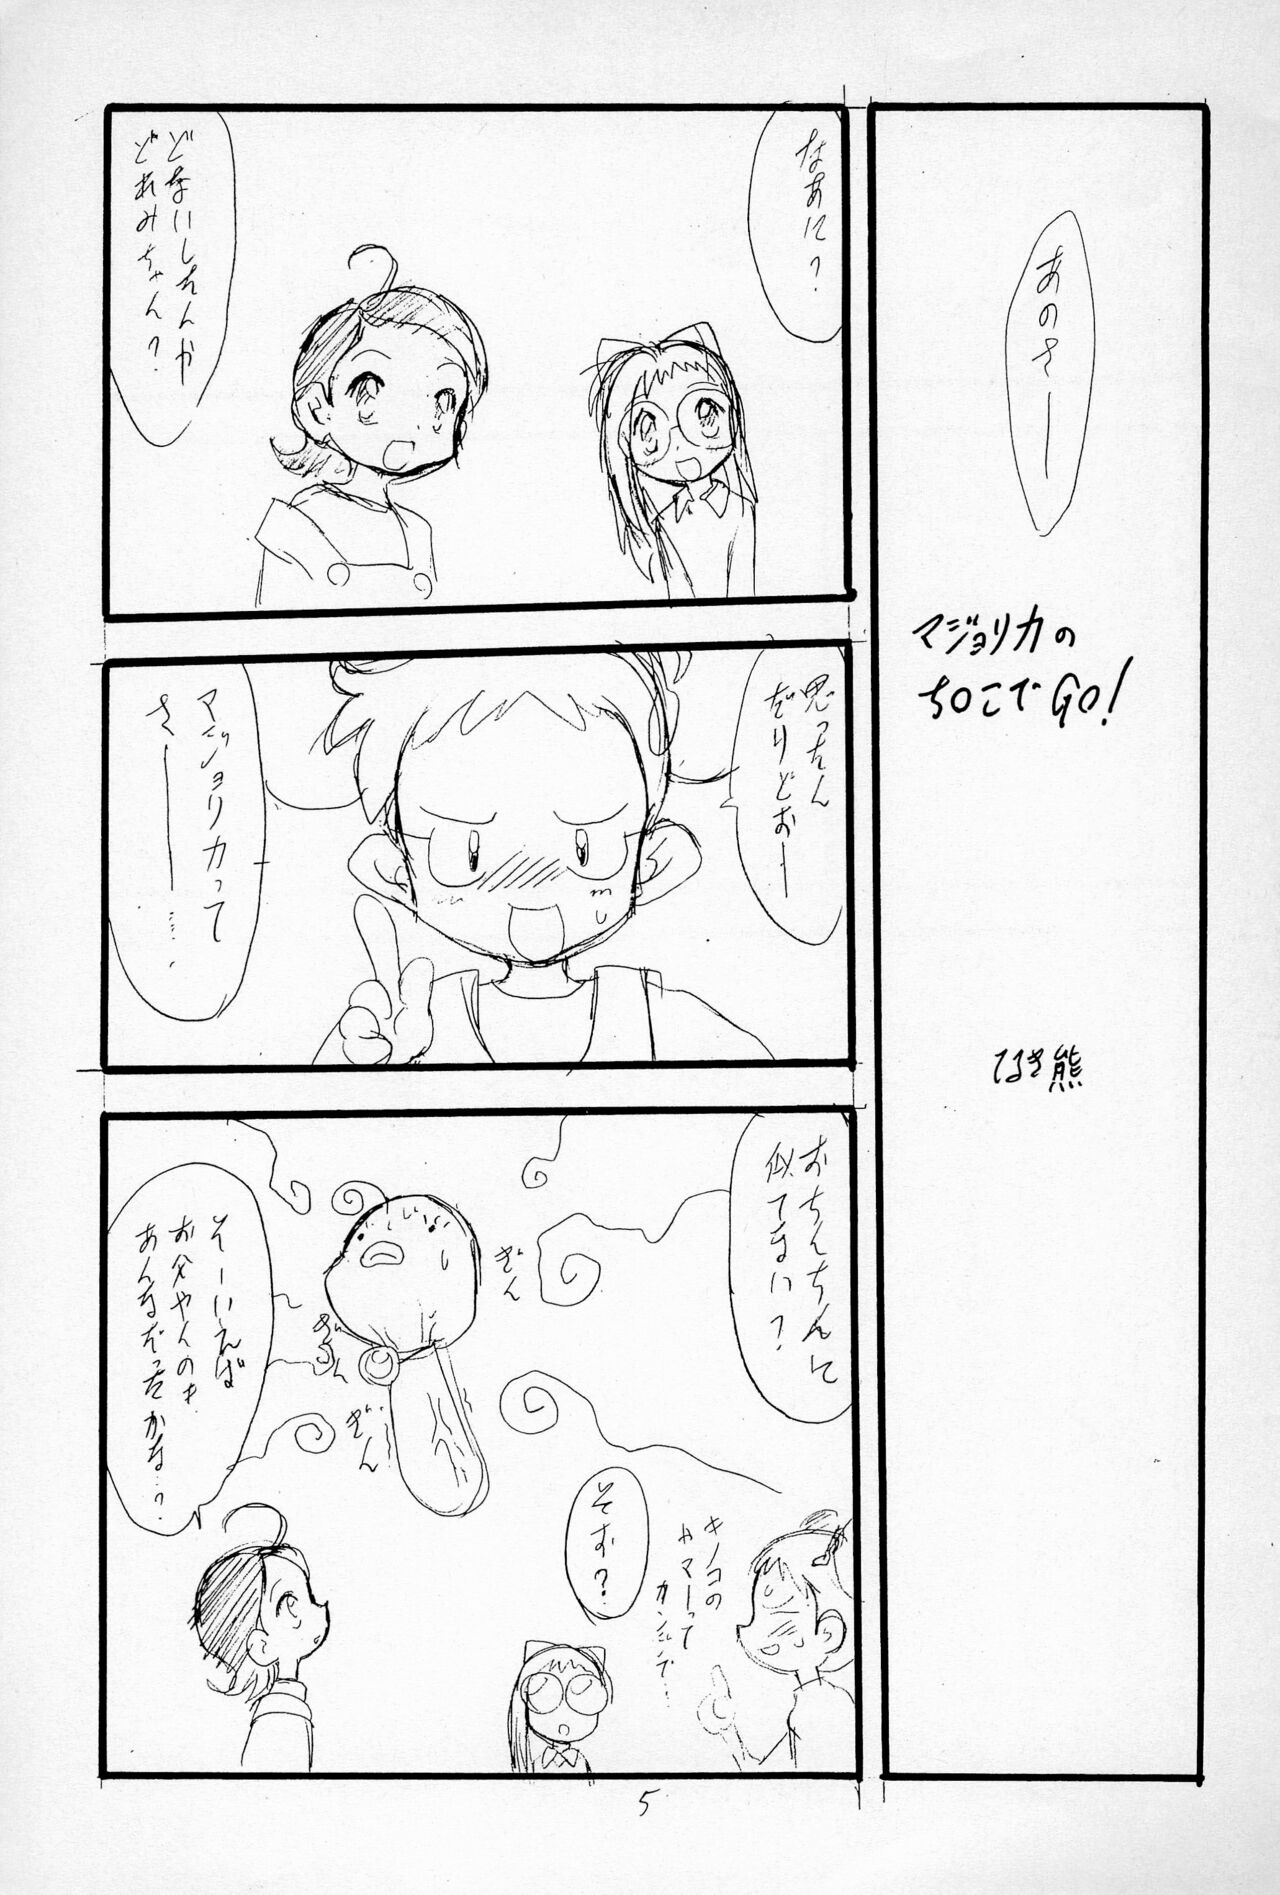 あのさー
マジョリカの
ち○こでGO!
てるき熊
なあに?
どないしたんか
どれみちゃん?
思ったん
だけどおー
マジョリカって
さー……
おちんちんに
似てない?
ぎん
ぎん
ぎん
そーいえば
お父やんのも
あんなだったかな…?
そお?
キノコの
ヤマーって
カンジで…
5